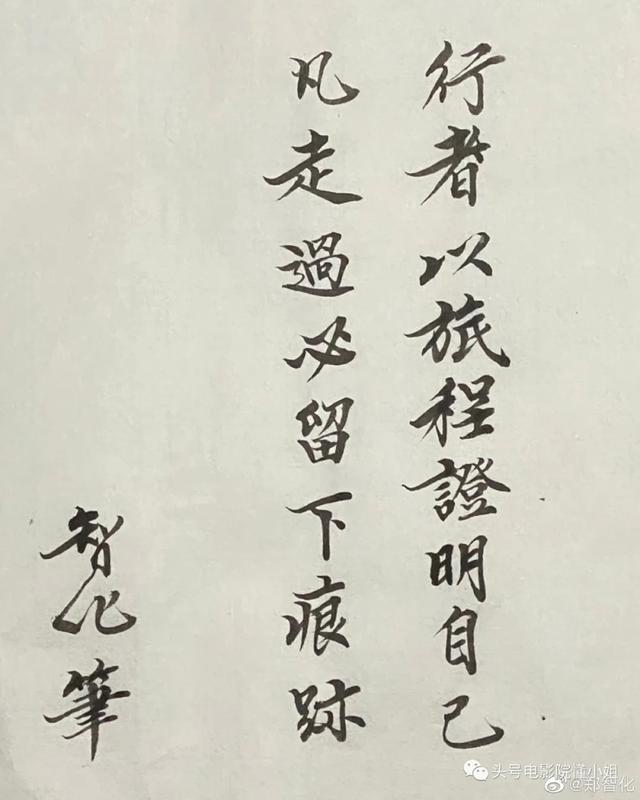 行者以旅程證明自己
凡走過必留下痕跡
智化筆
头号电影院懂小姐
@郑智化